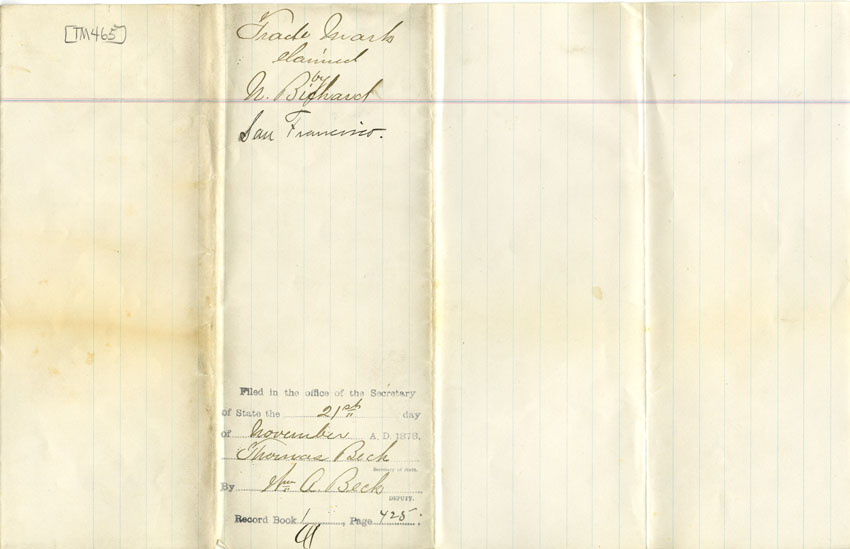 [TM465]
Trade Mark
claimed
by
N. Bichard
San Francisco.
Filed in the office of the Secretary
of State the 21st day
of November A. D. 1878.
Thomas Beck
Secretary of State.
By Wm A. Beck
DEPUTY.
Record Book 1, Page 425.